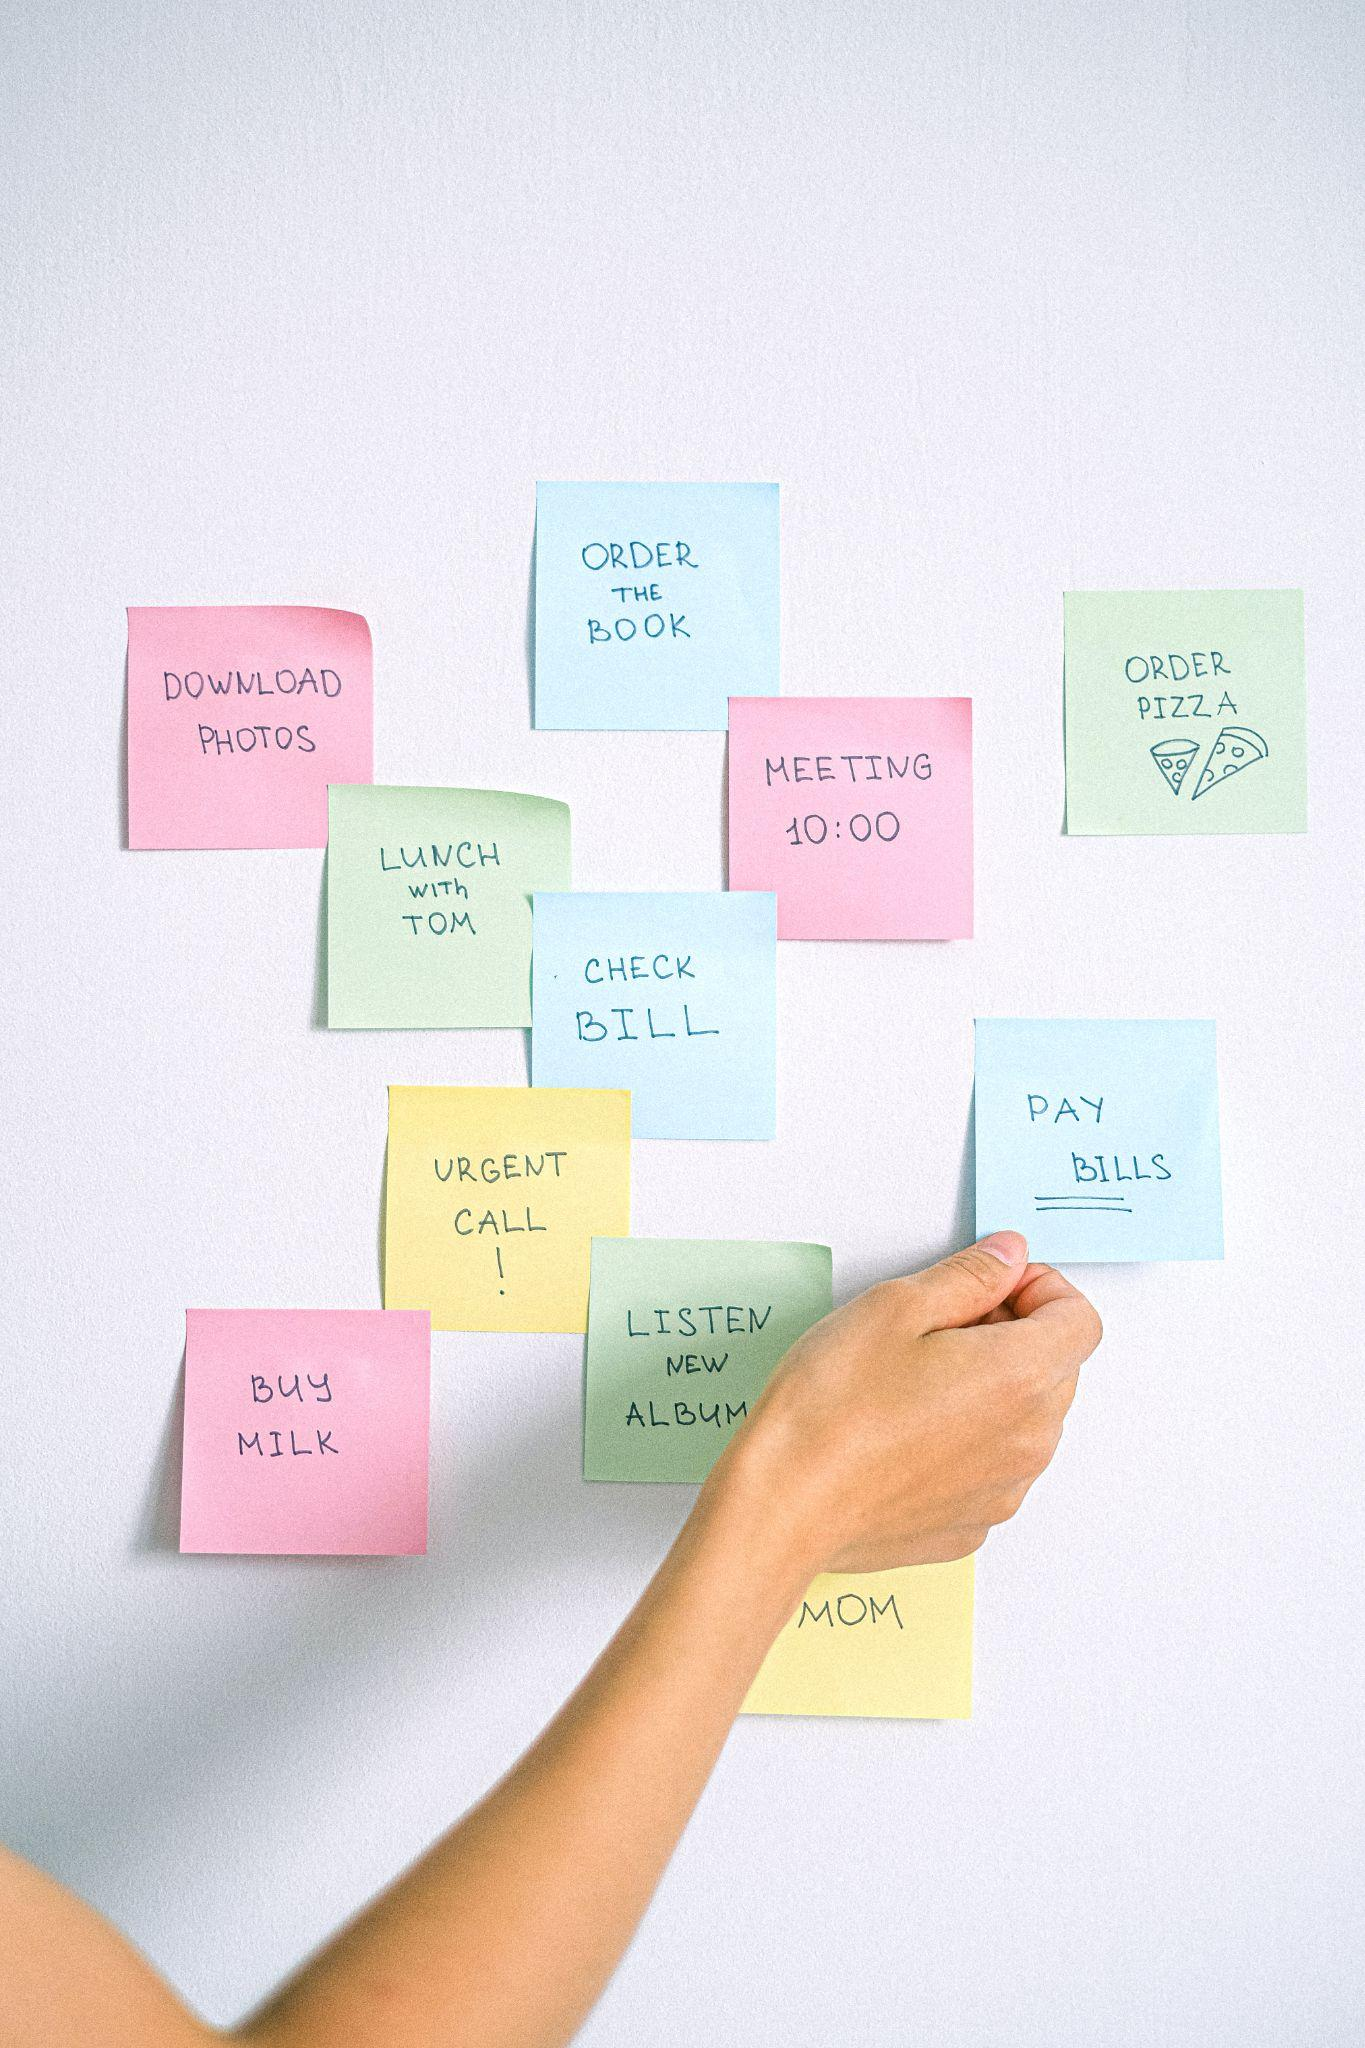 ORDER
THE
BOOK
DOWNLOAD
PHOTOS
ORDER
PIZZA
MEETING
10:00
LUNCH
WITh
TOM
CHECK
BILL
PAY
BILLS
URGENT
CALL
!
LISTEN
NEW
ALBUM
BUY
MILK
MOM